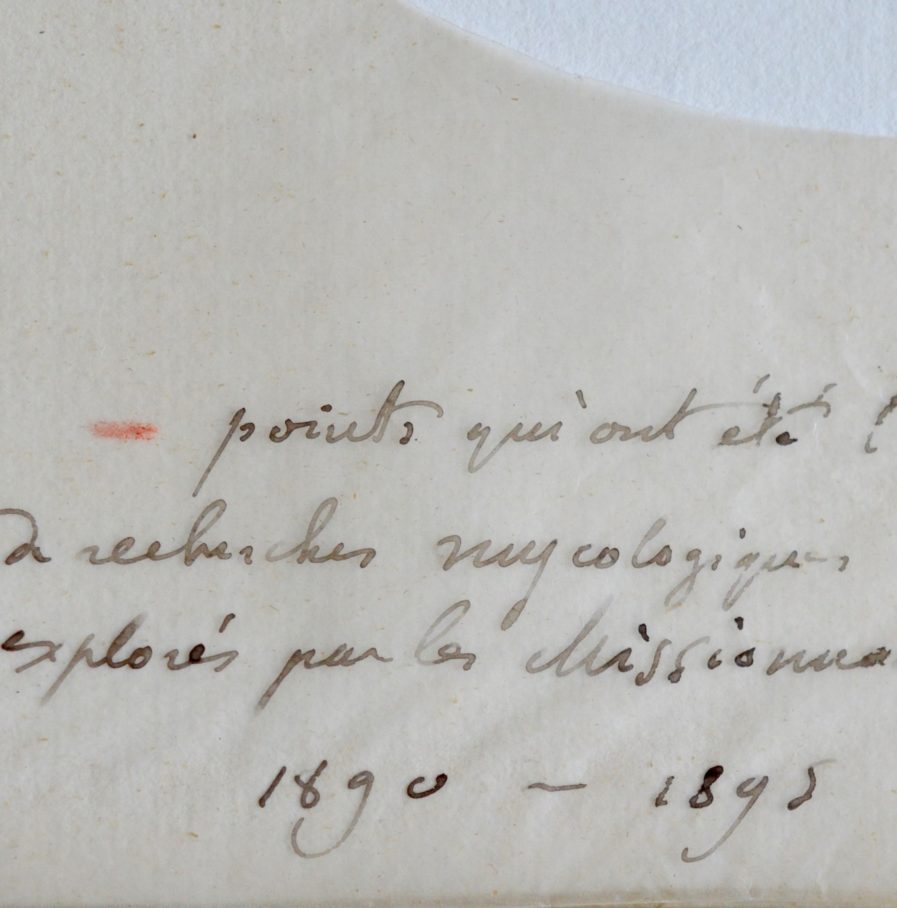 points qui ont été
de recherches mycologiques
explorés par les Missionna
1890 - 1895